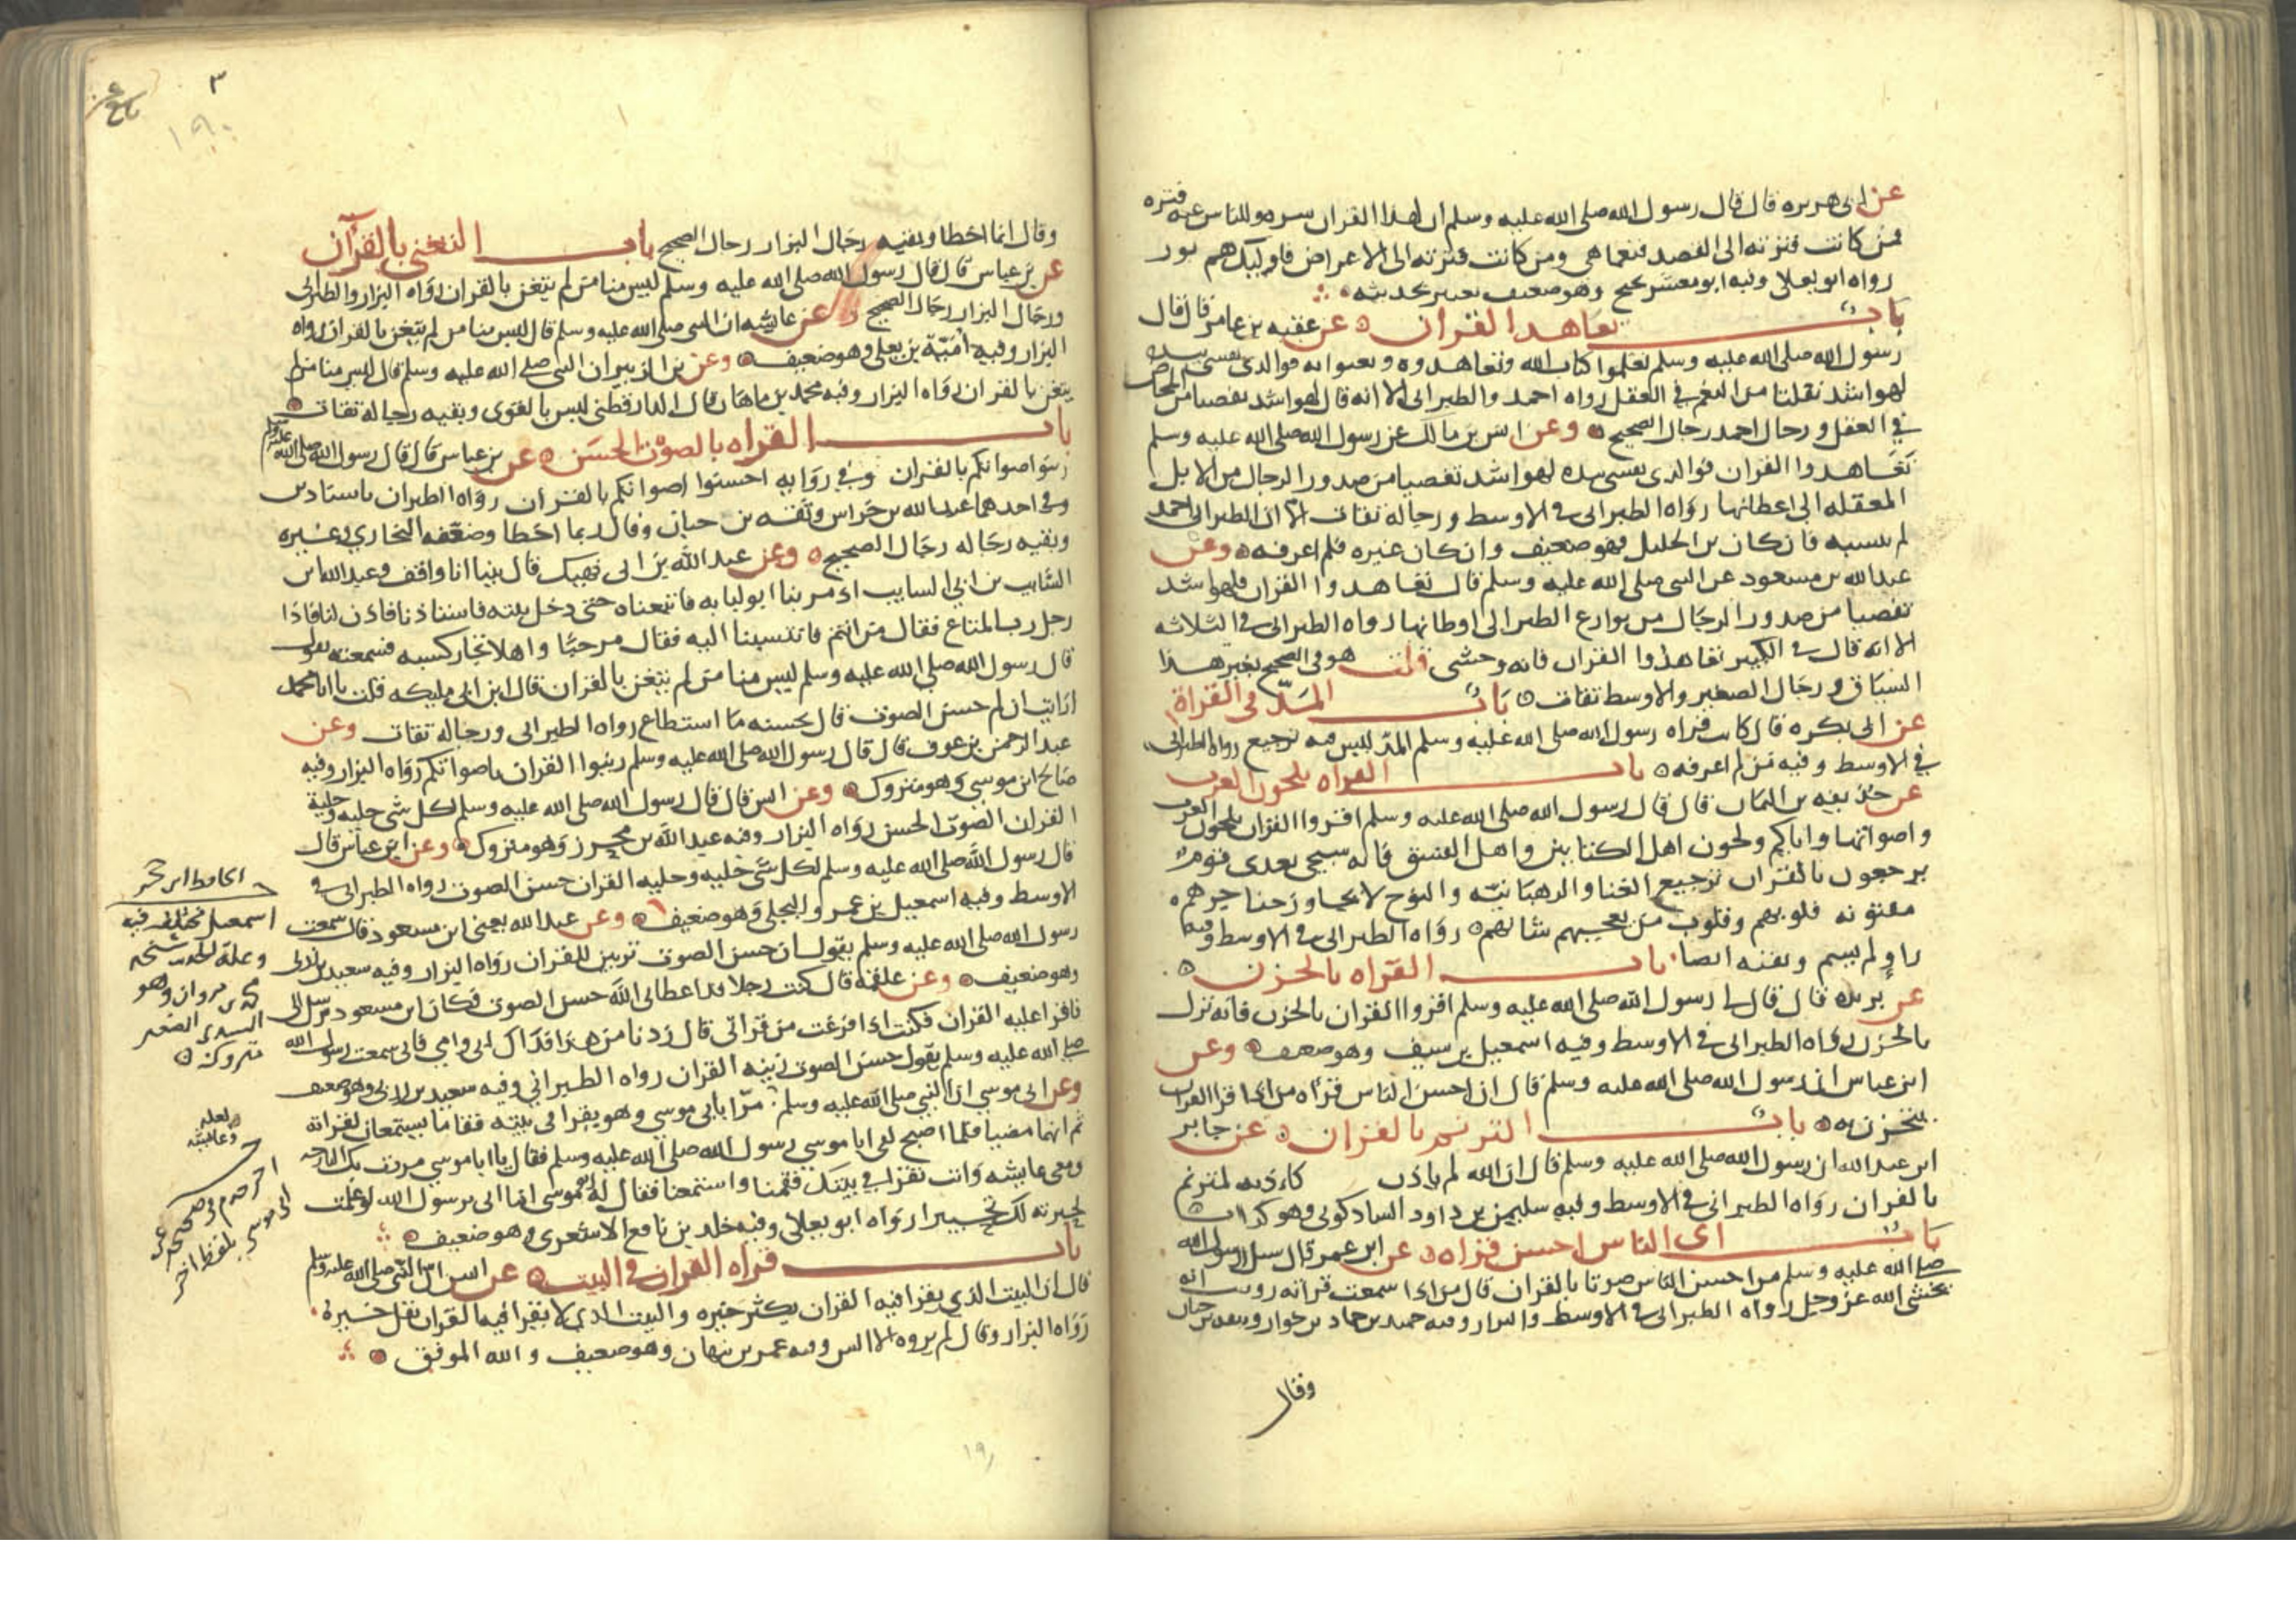 عن ابى هريره قال قال رسول الله صلى الله عليه وسلم ان لهذا القران شره وللناس عنه فتره
فمن كانت فترته الى القصد فنعما هى ومن كانت فترته الى الاعراض فاوليك هم بور
رواه ابو يعلى وفيه ابو معشر نجيح وهو ضعيف يعتبر بحديثه
باب تعاهد القران عن عقبه بن عامر قال قال
رسول الله صلى الله عليه وسلم تعلموا كتاب الله وتعاهدوه وتغنوا به فوالذى نفسى بيده
لهو اشد تفلتا من النعم فى العقل رواه احمد والطبرانى الا انه قال لهو اشد تفصيا من المخاض
في العقل ورجال احمد رجال الصحيح وعن انس بن مالك عن رسول الله صلى الله عليه وسلم
تعاهدوا القران فوالذى نفسى بيده لهو اشد تفصيا من صدور الرجال من الابل
المعقله الى اعطانها رواه الطبرانى فى الاوسط ورجاله ثقات الا ان الطبرانى احمد
لم ينسبه فان كان بن الخليل فهو ضعيف وان كان غيره فلم اعرفه وعن
عبد الله بن مسعود عن النبى صلى الله عليه وسلم قال تعاهدوا القران فلهو اشد
تفصيا من صدور الرجال من نوازع الطير الى اوطانها رواه الطبرانى فى الثلاثه
الا انه قال فى الكبير تعاهدوا القران فانه وحشى قلت هو فى الصحيح بغير هذا
السياق ورجال الصغير والاوسط ثقات باب المد فى القراة
عن ابى بكره قال كانت قراه رسول الله صلى الله عليه وسلم المد ليس فيه ترجيع رواه الطبرانى
في الاوسط وفيه من لم اعرفه باب القراه بلحون العرب
عن حذيفه بن اليمان قال قال رسول الله صلى الله عليه وسلم اقروا القران بلحون العرب
واصواتها واياكم ولحون اهل الكتابين واهل الفسق فانه سيجى بعدى قوم
يرجعون بالقران ترجيع الغنا والرهبانيه والنوح لا يجاوز حناجرهم
مفتونه قلوبهم وقلوب من يعجبهم شانهم رواه الطبرانى فى الاوسط وفيه
راو لم يسم وبقيه ايضا باب القراه بالحزن
عن بريده قال قال رسول الله صلى الله عليه وسلم اقروا القران بالحزن فانه نزل
بالحزن رواه الطبرانى فى الاوسط وفيه اسمعيل بن سيف وهو ضعيف وعن
ابن عباس ان رسول الله صلى الله عليه وسلم قال ان احسن الناس قراه من اذا قرا القران
يتحزن به باب الترنم بالقران عن جابر
ابن عبد الله ان رسول الله صلى الله عليه وسلم قال ان الله لم ياذن كاذنه لمترنم
بالقران رواه الطبرانى فى الاوسط وفيه سليمن بن داود الشاذكونى وهو كذاب
باب اى الناس احسن قراه عن ابن عمر قال سيل رسول الله
صلى الله عليه وسلم من احسن الناس صوتا بالقران قال من اذا سمعت قرائه رويت انه
يخشى الله عز وجل رواه الطبرانى فى الاوسط والبزار وفيه حميد بن حماد بن خوار وثقه بن حبان
وقال
٣
١٩٠
وقال انما اخطا وبقيه رجال البزار رجال الصحيح باب التغنى بالقرآن
عن بن عباس قال قال رسول الله صلى الله عليه وسلم ليس منا من لم يتغن بالقران رواه البزار والطبرانى
ورجال البزار رجال الصحيح وعن عايشه ان النبى صلى الله عليه وسلم قال ليس منا من لم يتغن بالقران رواه
البزار وفيه أميّة بن يعلى وهو ضعيف وعن بن الزبير ان النبى صلى الله عليه وسلم قال ليس منا من لم
يتغن بالقران رواه البزار وفيه محمد بن ماهان قال الدارقطنى ليس بالقوى وبقيه رجاله ثقات
باب القراه بالصوت الحسن عن بن عباس قال قال رسول الله صلى الله عليه وسلم
زينوا اصواتكم بالقران وفى روايه احسنوا اصواتكم بالقران رواه الطبرانى باسنادين
وفى احدهما عبد الله بن خراش وثقه بن حبان وقال ربما اخطا وضعفه البخارى وغيره
وبقيه رجاله رجال الصحيح وعن عبد الله بن ابى نهيك قال بينا انا واقف وعبد الله بن
السايب بن ابى السايب اذ مر بنا ابو لبابه فاتبعناه حتى دخل بيته فاستاذنا فاذن لنا فاذا
رجل رث المتاع فقال من انتم فانتسبنا اليه فقال مرحبا واهلا تجار كسبه فسمعته يقول
قال رسول الله صلى الله عليه وسلم ليس منا من لم يتغن بالقران قال ابن ابى مليكه قلت يا ابا محمد
ارايت ان لم حسن الصوت قال يحسنه ما استطاع رواه الطبرانى ورجاله ثقات وعن
عبد الرحمن بن عوف قال قال رسول الله صلى الله عليه وسلم زينوا القران باصواتكم رواه البزار وفيه
صالح ابن موسى وهو متروك وعن انس قال قال رسول الله صلى الله عليه وسلم لكل شى حليه وحلية
القران الصوت الحسن رواه البزار وفيه عبد الله بن محرز وهو متروك وعن ابن عباس قال
قال رسول الله صلى الله عليه وسلم لكل شى حليه وحليه القران حسن الصوت رواه الطبرانى فى
الاوسط وفيه اسمعيل بن عمرو البجلى وهو ضعيف وعن عبد الله يعنى ابن مسعود قال سمعت
رسول الله صلى الله عليه وسلم يقول ان حسن الصوت تزيين للقران رواه البزار وفيه سعيد بن زربى
وهو ضعيف وعن علقمه قال كنت رجلا قد اعطانى الله حسن الصوت فكان ابن مسعود يرسل الى
فاقرا عليه القران فكنت اذا فرغت من قراتى قال زدنا من هذا فداك ابى وامى فانى سمعت رسول الله
صلى الله عليه وسلم يقول حسن الصوت زينه القران رواه الطبرانى وفيه سعيد بن زربى وهو ضعيف
وعن ابى موسى ان النبى صلى الله عليه وسلم مرّا بابى موسى وهو يقرا فى بيته فقاما يستمعان لقراته
ثم انهما مضيا فلما اصبح لقى ابا موسى رسول الله صلى الله عليه وسلم فقال يا ابا موسى مررت بك البارحه
ومعى عايشه وانت تقرا فى بيتك فقمنا واستمعنا فقال له ابو موسى اما انى يرسول الله لو علمت
لحبرته لك تحبيرا رواه ابو يعلى وفيه خلد بن نافع الاشعرى وهو ضعيف
باب قراه القران فى البيت عن انس ان النبى صلى الله عليه وسلم
قال ان البيت الذى يقرا فيه القران يكثر خيره والبيت الذى لا يقرا فيه القران يقل خيره
رواه البزار وقال لم يروه الا انس وفيه عمر بن نبهان وهو ضعيف والله الموفق
اسمعيل مختلف فيه
وعله الحديث شيخه
محمد بن مروان وهو
السدى الصغير
متروك
لعله
وعائشه
اخرجه م فى صحيحه عن
ابى موسى بلفظ اخر